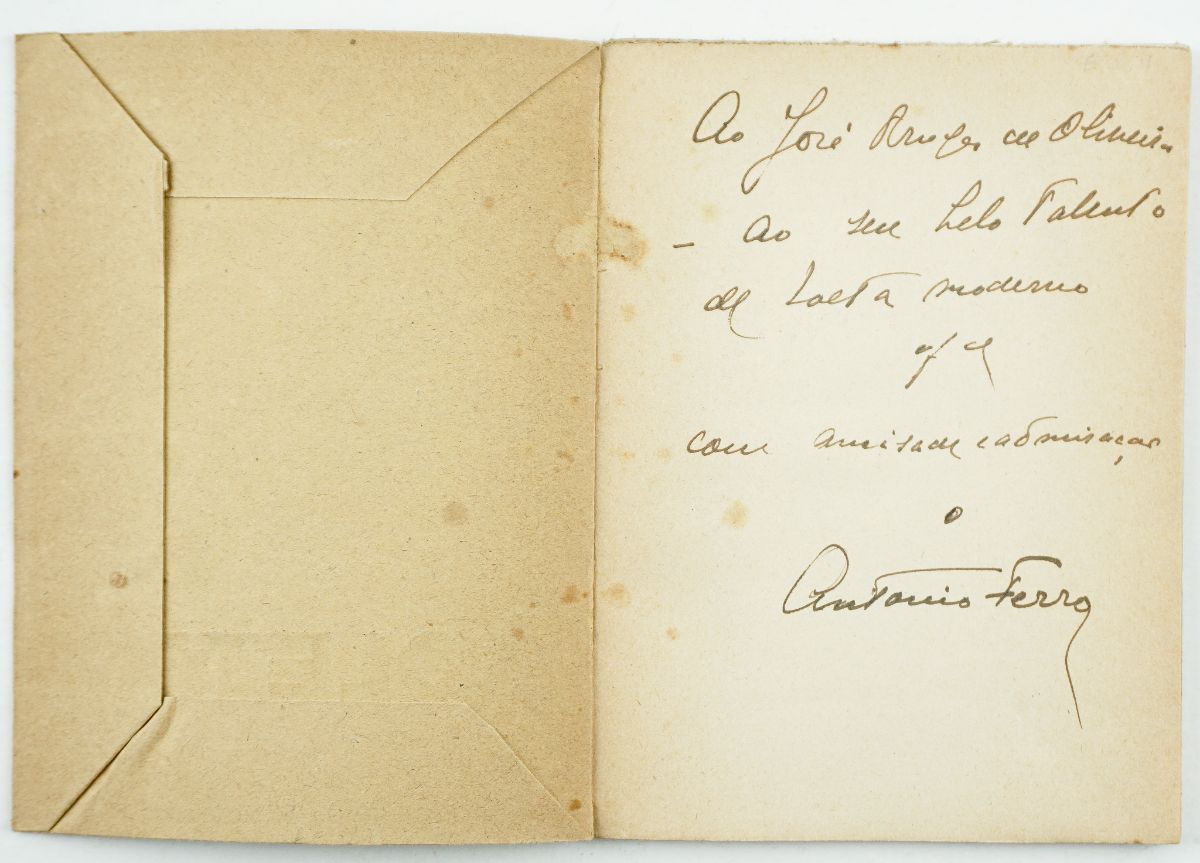 Ao José Bruges de Oliveira
– ao seu belo talento
de poeta moderno
of. ce
com amisade e admiraçao
o
Antonio Ferro